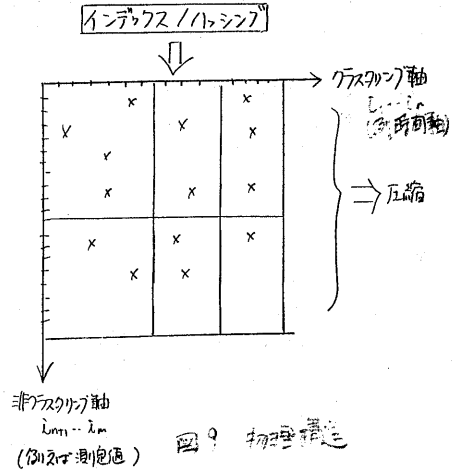 インデックス/ハッシング
クラスタリング軸
i₁…iₙ
(例、時間軸)
⇒圧縮
非クラスタリング軸
iₙ₊₁‥iₘ
(例えば測定値)
図9 物理構造